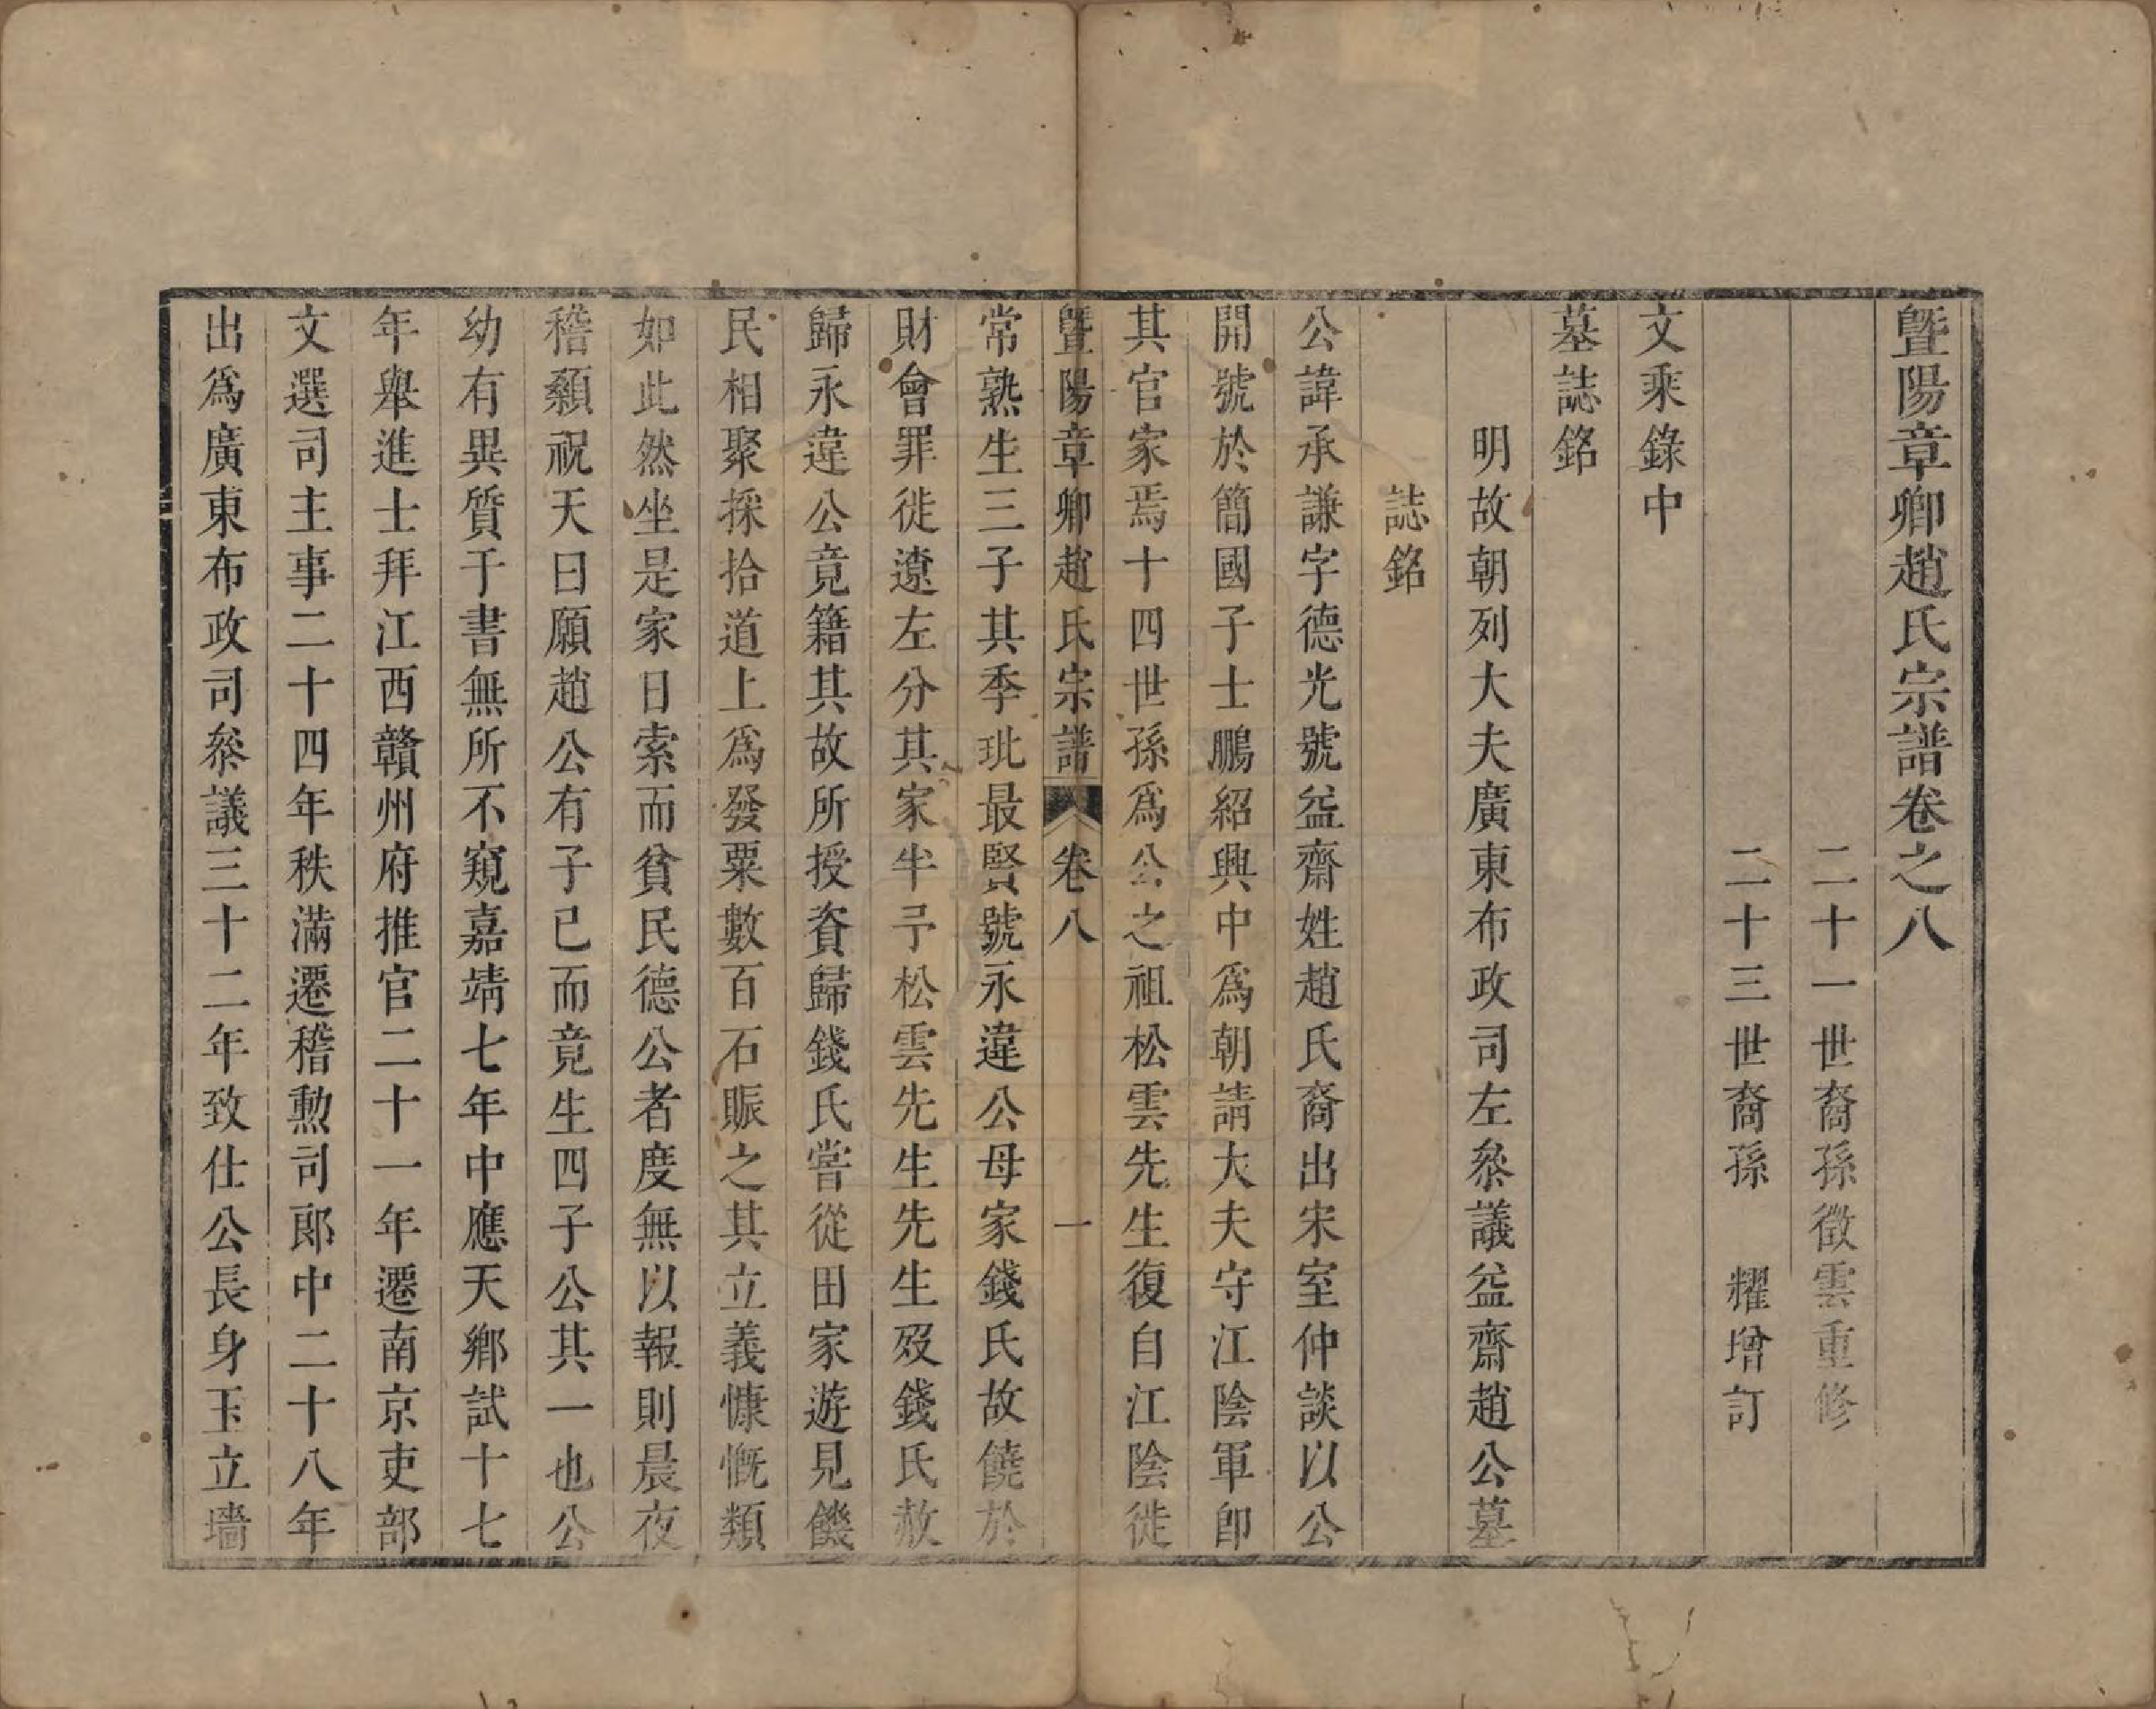 暨陽章卿趙氏宗譜卷之八
二十一世裔孫徵雲重修
二十三世裔孫　耀增訂
文乘錄中
墓誌銘
明故朝列大夫廣東布政司左叅議益齋趙公墓
誌銘
公諱承謙字德光號益齋姓趙氏裔出宋室仲談以公
開號於簡國子士鵬紹興中爲朝請大夫守江陰軍卽
其官家焉十四世孫爲公之祖松雲先生復自江陰徙
暨陽章卿趙氏宗譜　卷八　一
常熟生三子其季玭最賢號永違公母家錢氏故饒於
財會罪徙遼左分其家半予松雲先生先生歿錢氏赦
歸永違公竟籍其故所授資歸錢氏嘗從田家遊見饑
民相聚採拾道上爲發粟數百石賑之其立義慷慨類
如此然坐是家日索而貧民德公者度無以報則晨夜
稽顙祝天曰願趙公有子已而竟生四子公其一也公
幼有異質于書無所不窺嘉靖七年中應天鄉試十七
年舉進士拜江西贛州府推官二十一年遷南京吏部
文選司主事二十四年秩滿遷稽勲司郎中二十八年
出爲廣東布政司叅議三十二年致仕公長身玉立墻